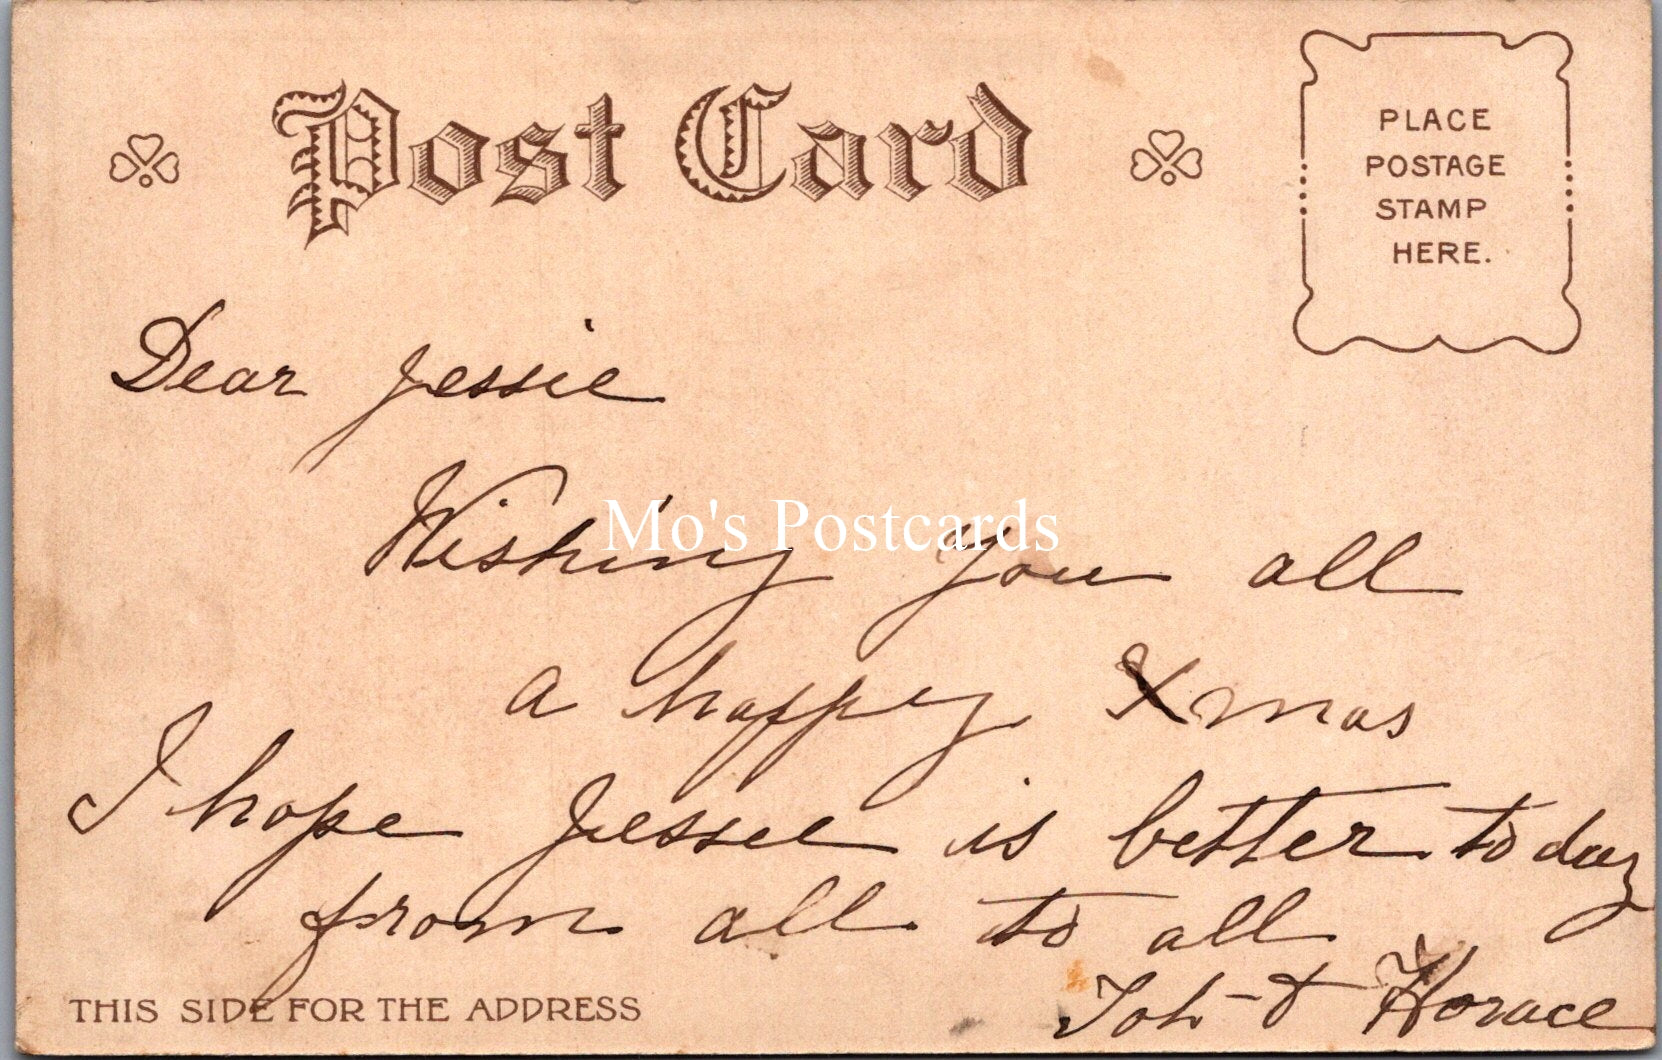 Post Card
PLACE
POSTAGE
STAMP
HERE.
Dear Jessie
Wishing You all
a happy Xmas
I hope Jessee is better to day
from all to all
& Horace
THIS SIDE FOR THE ADDRESS
Mo's Postcards